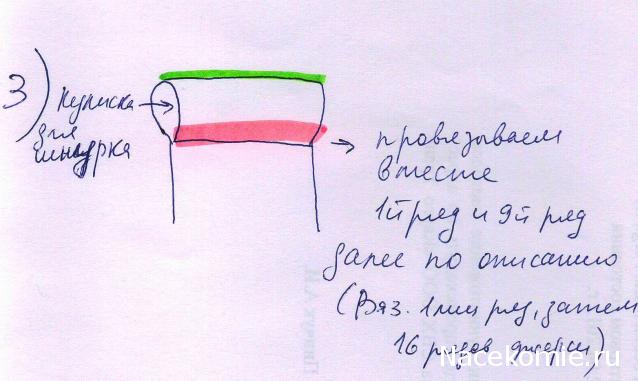 3)
Кулиска
для
шнурка
провязываем
вместе
1й ряд и 9й ряд
далее по описанию
(Вяз. 1 лиц ряд, затем
16 рядов
Nacekomie.ru